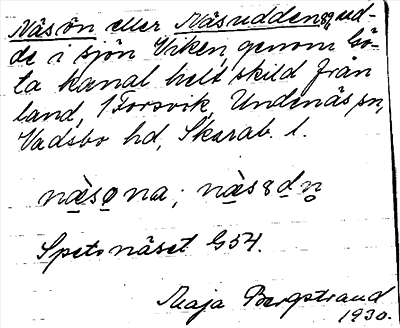 Näsön eller Näsudden, ud-
de i sjön Viken genom Gö-
ta kanal helt skild från
land, Forsvik, Undenäs sn,
Vadsbo hd, Skarab. l.
Spetsnäset G54.
Maja Bergstrand
1930.